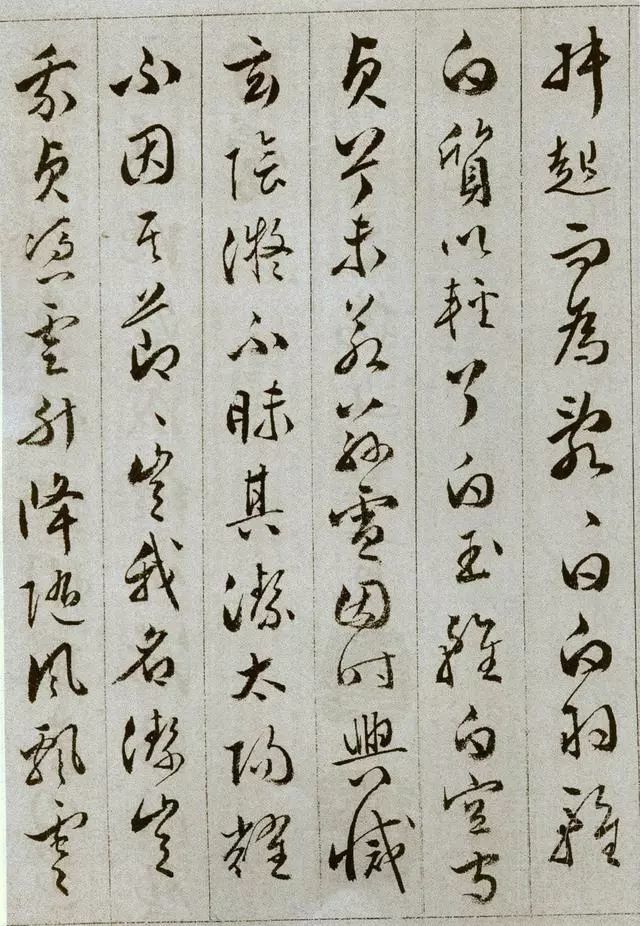 叔起而為亂〻曰白羽雖
白質以輕兮白玉雖白空守
貞兮未若茲雪因時興滅
玄陰凝不昧其潔太陽耀
不因其節〻豈我名潔豈
我貞憑雲升降隨風飄零